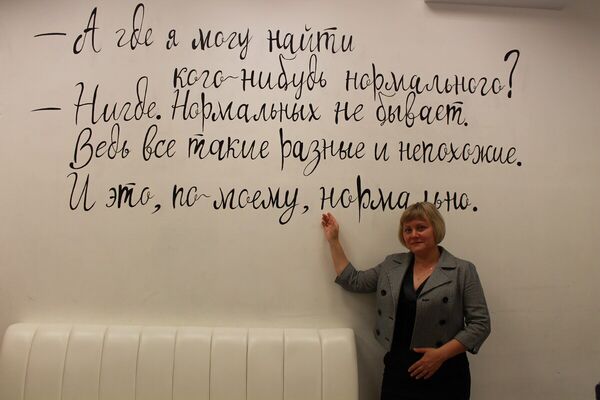 — А где я могу найти
кого-нибудь нормального?
— Нигде. Нормальных не бывает.
Ведь все такие разные и непохожие.
И это, по-моему, нормально.